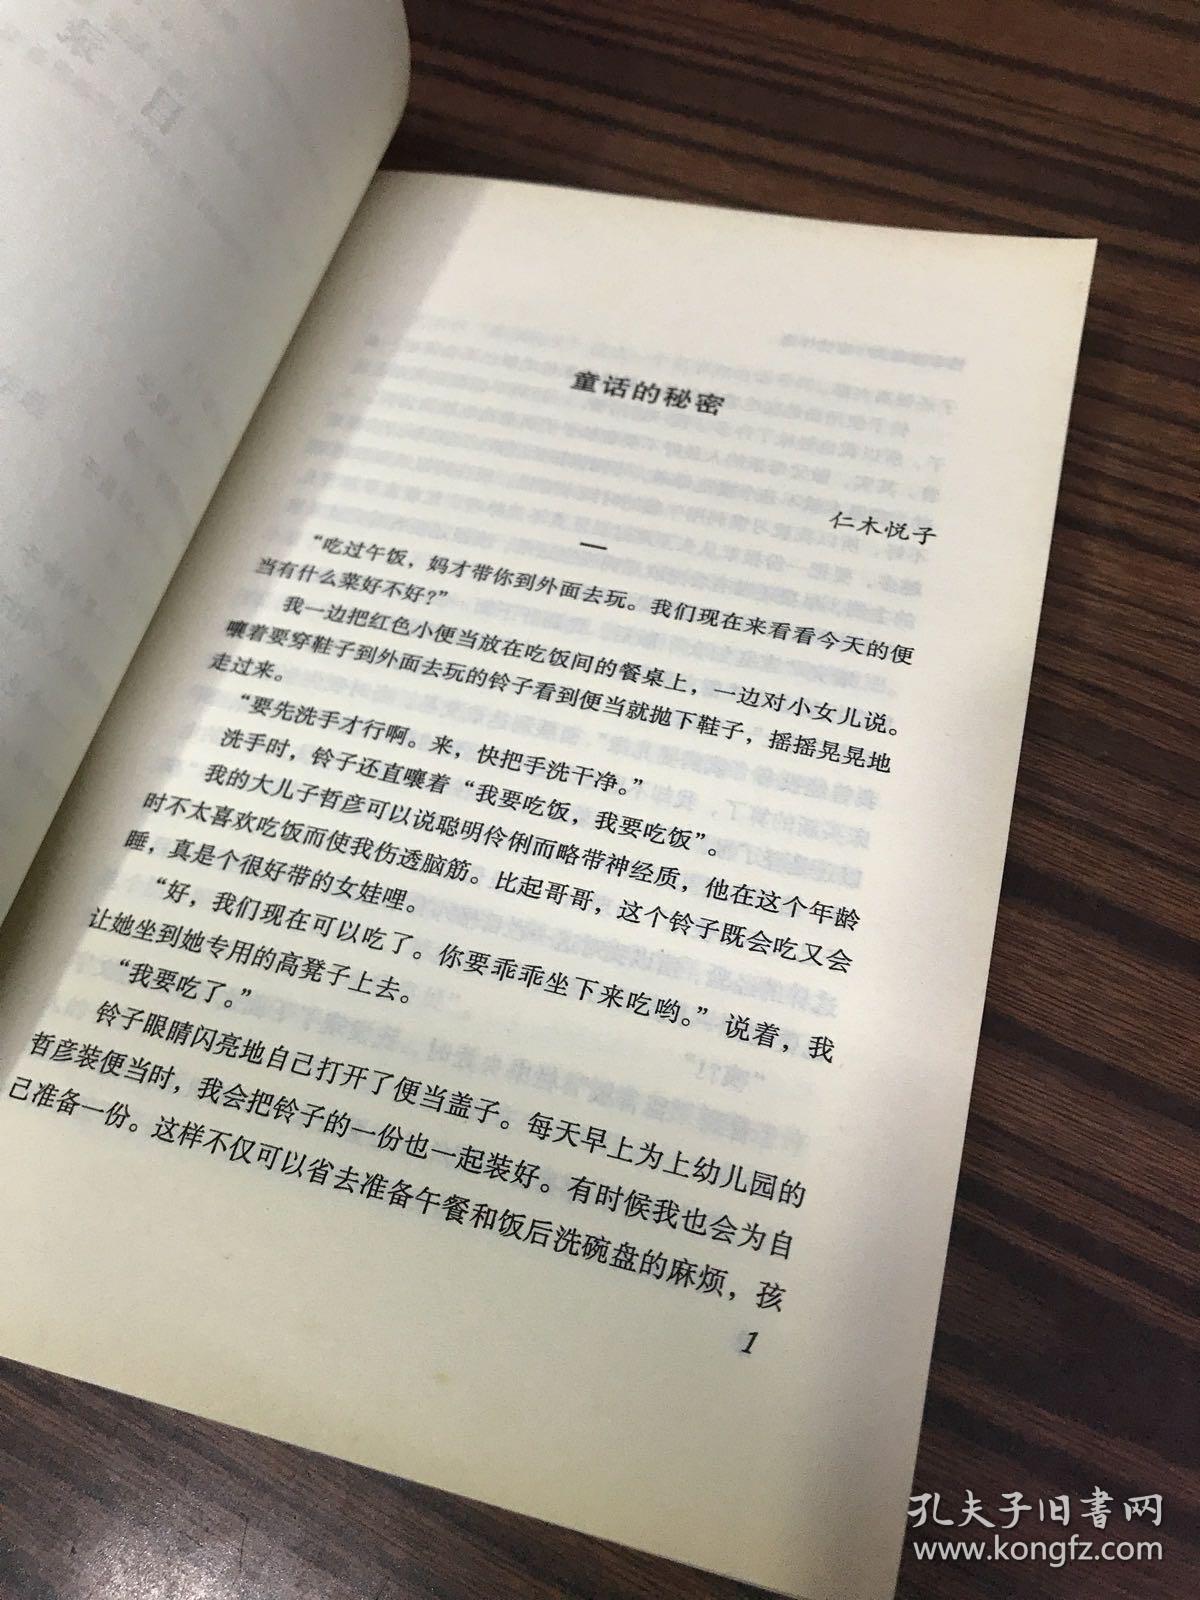 童话的秘密
仁木悦子
一
“吃过午饭，妈才带你到外面去玩。我们现在来看看今天的便
当有什么菜好不好？”
我一边把红色小便当放在吃饭间的餐桌上，一边对小女儿说。
嚷着要穿鞋子到外面去玩的铃子看到便当就抛下鞋子，摇摇晃晃地
走过来。
“要先洗手才行啊。来，快把手洗干净。”
洗手时，铃子还直嚷着“我要吃饭，我要吃饭”。
我的大儿子哲彦可以说聪明伶俐而略带神经质，他在这个年龄
时不太喜欢吃饭而使我伤透脑筋。比起哥哥，这个铃子既会吃又会
睡，真是个很好带的女娃哩。
“好，我们现在可以吃了。你要乖乖坐下来吃哟。”说着，我
让她坐到她专用的高凳子上去。
“我要吃了。”
铃子眼睛闪亮地自己打开了便当盖子。每天早上为上幼儿园的
哲彦装便当时，我会把铃子的一份也一起装好。有时候我也会为自
己准备一份。这样不仅可以省去准备午餐和饭后洗碗盘的麻烦，孩
1
孔夫子旧书网
www.kongfz.com